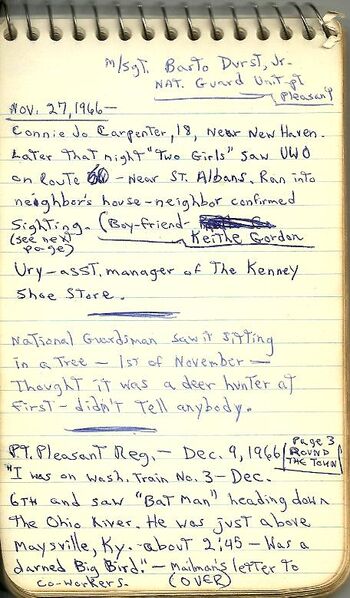 M/Sgt. Barto Durst, Jr.
Nat. Guard Unit - Pt
Pleasant
Nov. 27, 1966 -
Connie Jo Carpenter, 18, Near New Haven.
Later that night "Two Girls" saw UWO
on Route 60 - Near St. Albans. Ran into
neighbor's house - neighbor confirmed
Sighting. (Boy-friend
(see next page)
Keithe Gordon
Ury - asst. manager of the Kenney
Shoe Store.
National Guardsman saw it sitting
in a tree - 1st of November -
Thought it was a deer hunter at
First - didn't tell anybody.
Pt. Pleasant Reg. - Dec. 9, 1966
Page 3
Round
the Town
"I was on Wash. Train No. 3 - Dec.
6th and saw "Bat Man" heading down
the Ohio River. He was just above
Maysville, Ky. - about 2:45 - Was a
darned Big Bird." - Mailman's letter to
co-workers. (OVER)